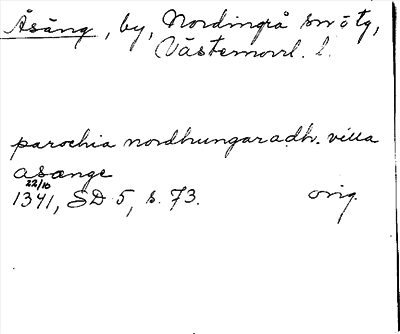 Åsäng, by, Nordingrå sn o tg,
Västernorrl. l.
parochia nordhungaradh. villa
asænge
22/10
1341, SD 5, s. 73. orig.